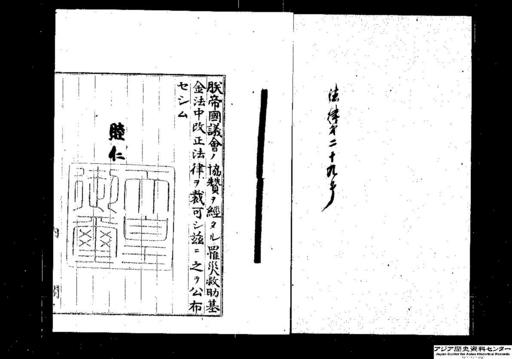 法律第二十九号
朕帝國議會ノ協贊ヲ經タル罹災救助基
金法中改正法律ヲ裁可シ茲ニ之ヲ公布
セシム
睦仁
天皇
御璽
内閣
アジア歴史資料センター
Japan Center for Asian Historical Records